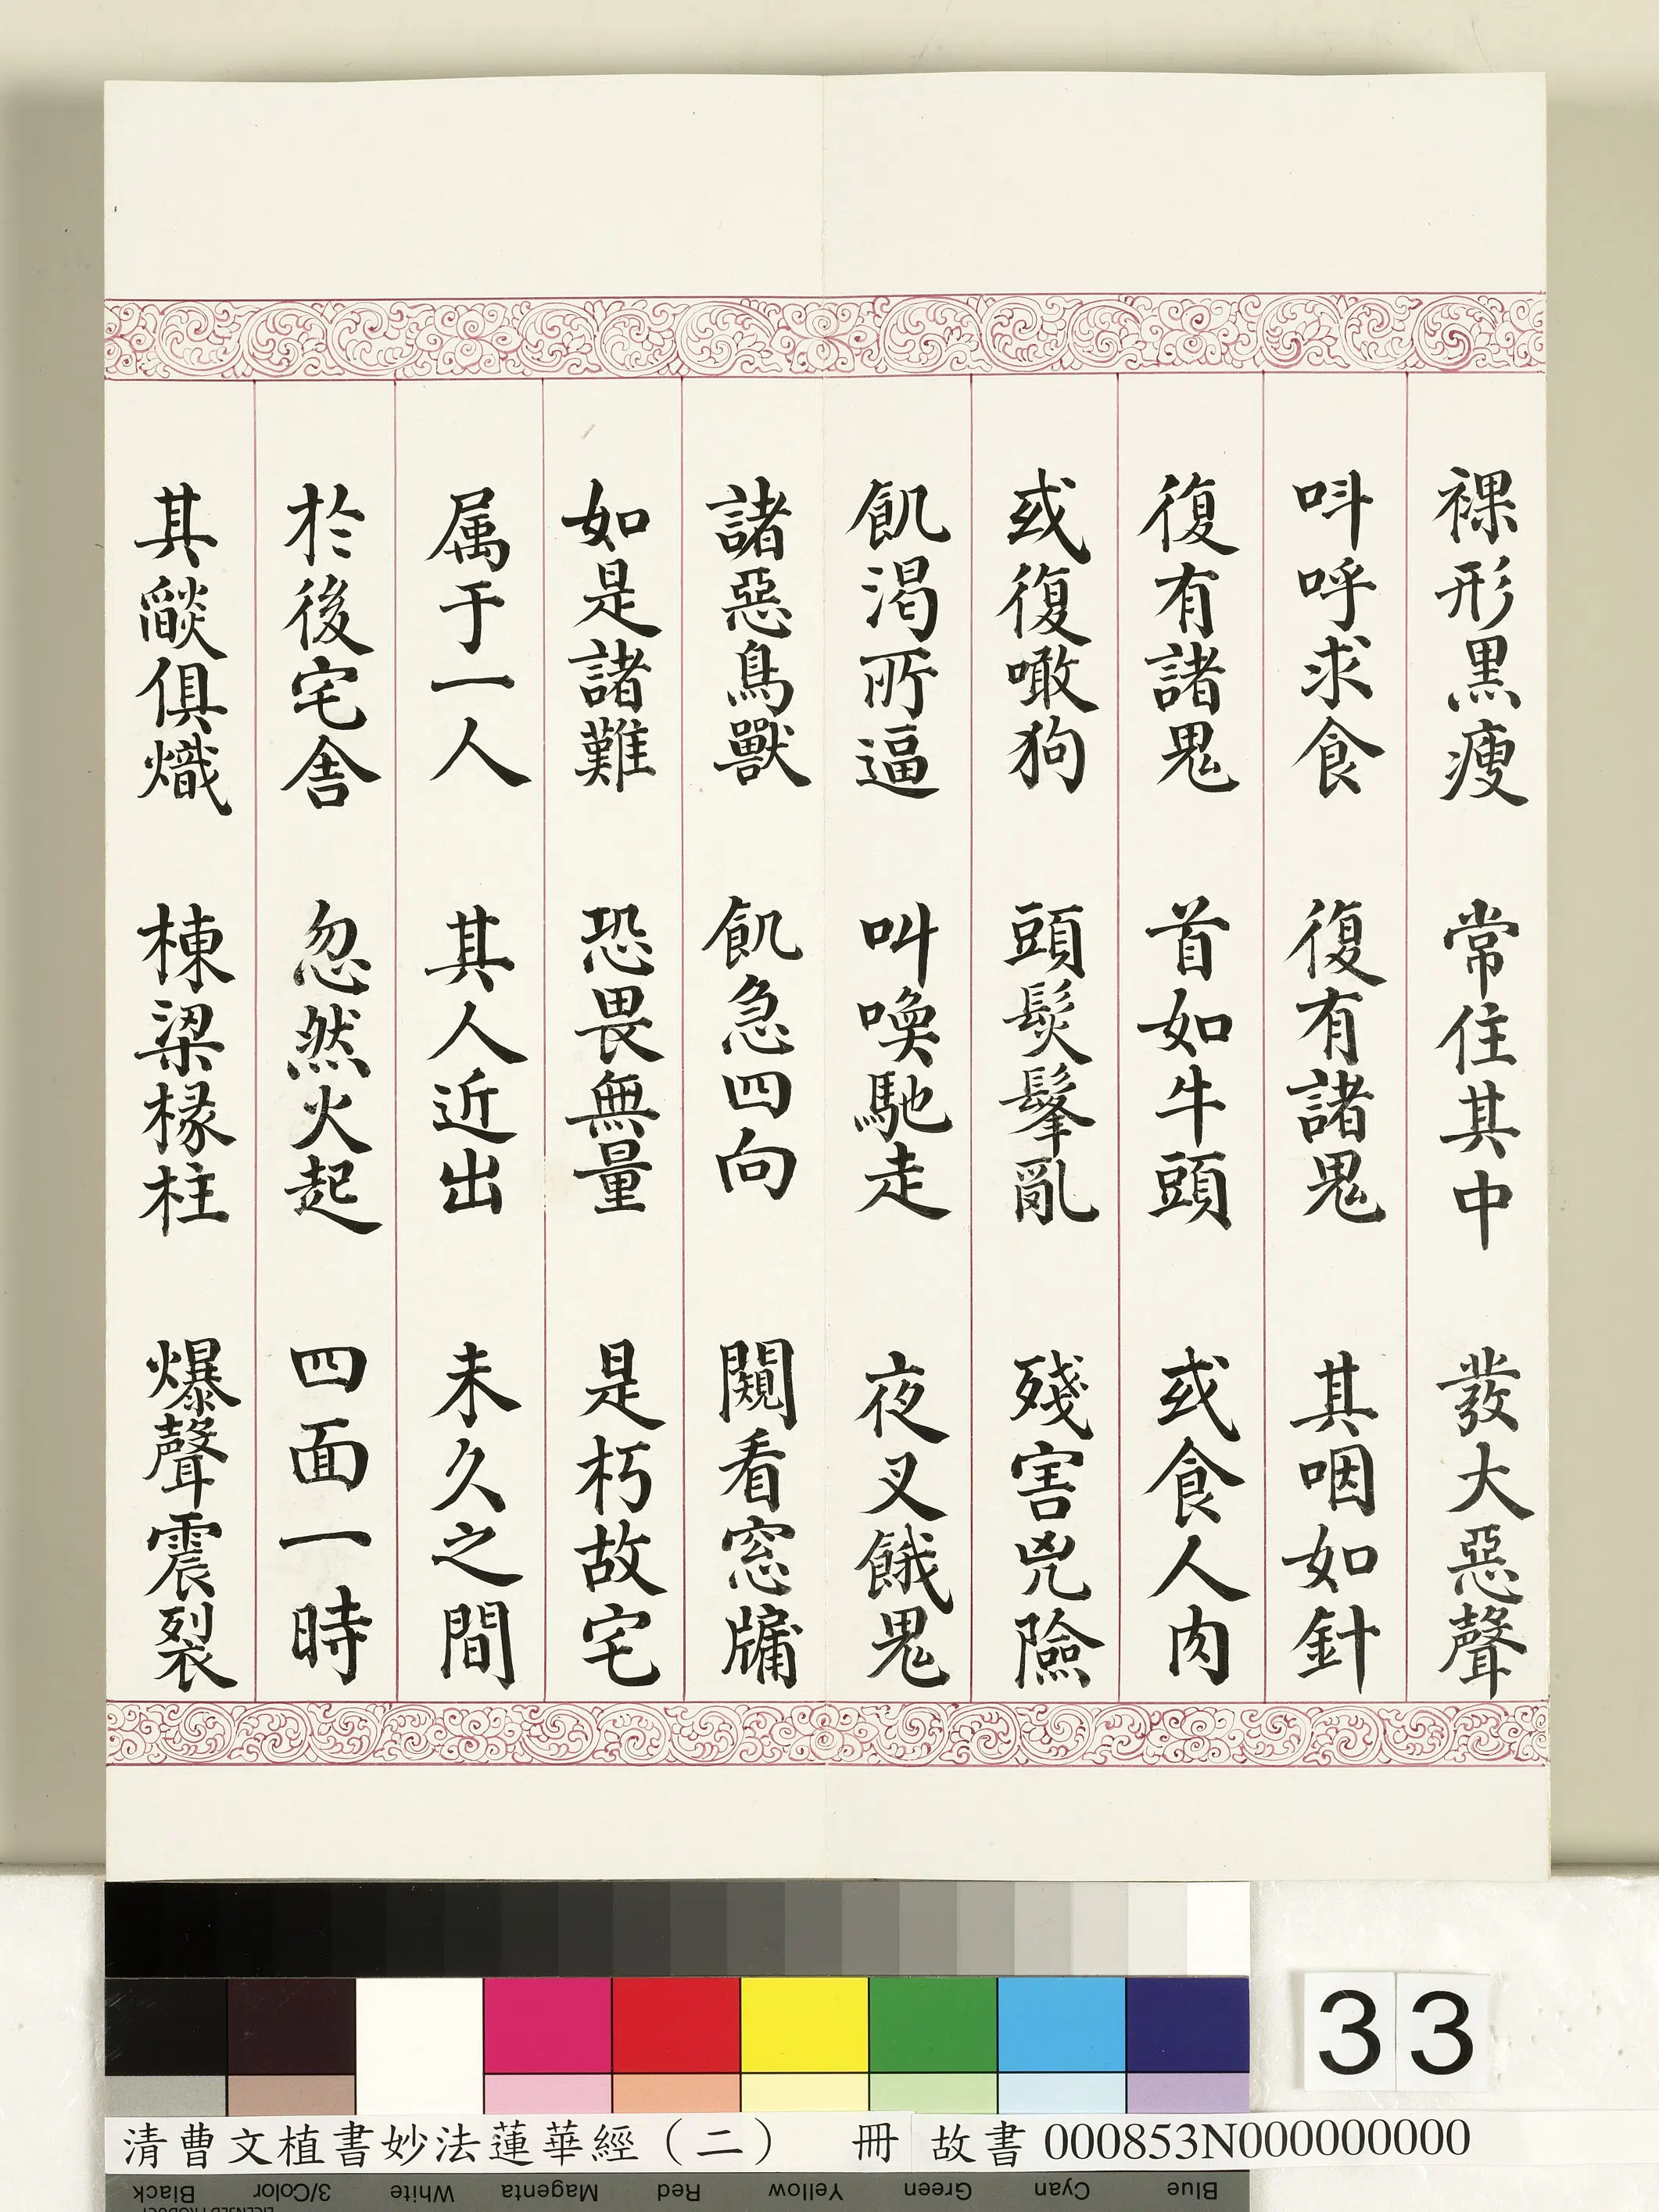 裸形黑瘦　常住其中　發大惡聲
呌呼求食　復有諸鬼　其咽如針
復有諸鬼　首如牛頭　或食人肉
或復噉狗　頭髮髼亂　殘害兇險
飢渴所逼　叫喚馳走　夜叉餓鬼
諸惡鳥獸　飢急四向　闚看窓牖
如是諸難　恐畏無量　是朽故宅
属于一人　其人近出　未久之間
於後宅舍　忽然火起　四面一時
其燄俱熾　棟梁椽柱　爆聲震裂
33
清曹文植書妙法蓮華經（二）　冊　故書000853N000000000
Black 3/Color White Magenta Red Yellow Green Cyan Blue